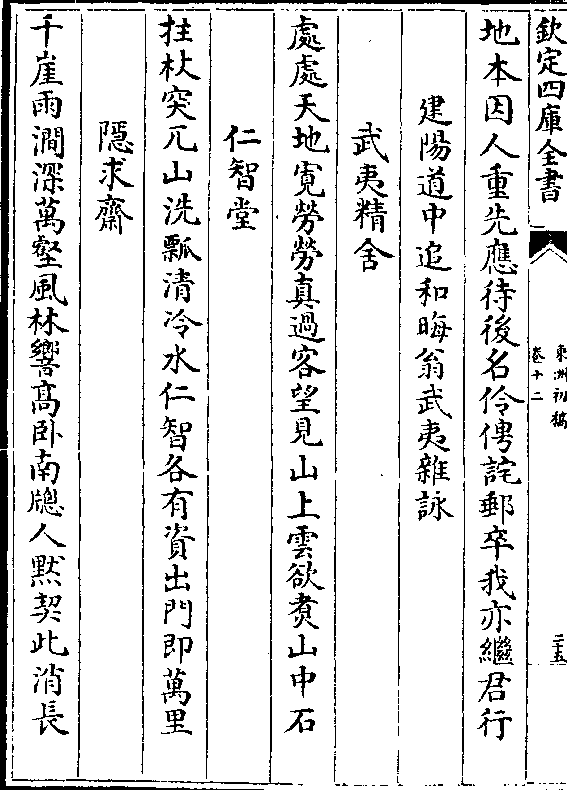 欽定四庫全書
東洲初稿
卷十二
二十五
地本因人重先應待後名伶俜詫郵卒我亦繼君行
建陽道中追和晦翁武夷雜詠
武夷精舍
處處天地寛勞勞真過客望見山上雲欲煑山中石
仁智堂
拄杖突兀山洗瓢清冷水仁智各有資出門即萬里
隱求齋
千崖雨澗深萬壑風林響髙卧南牕人黙契此消長